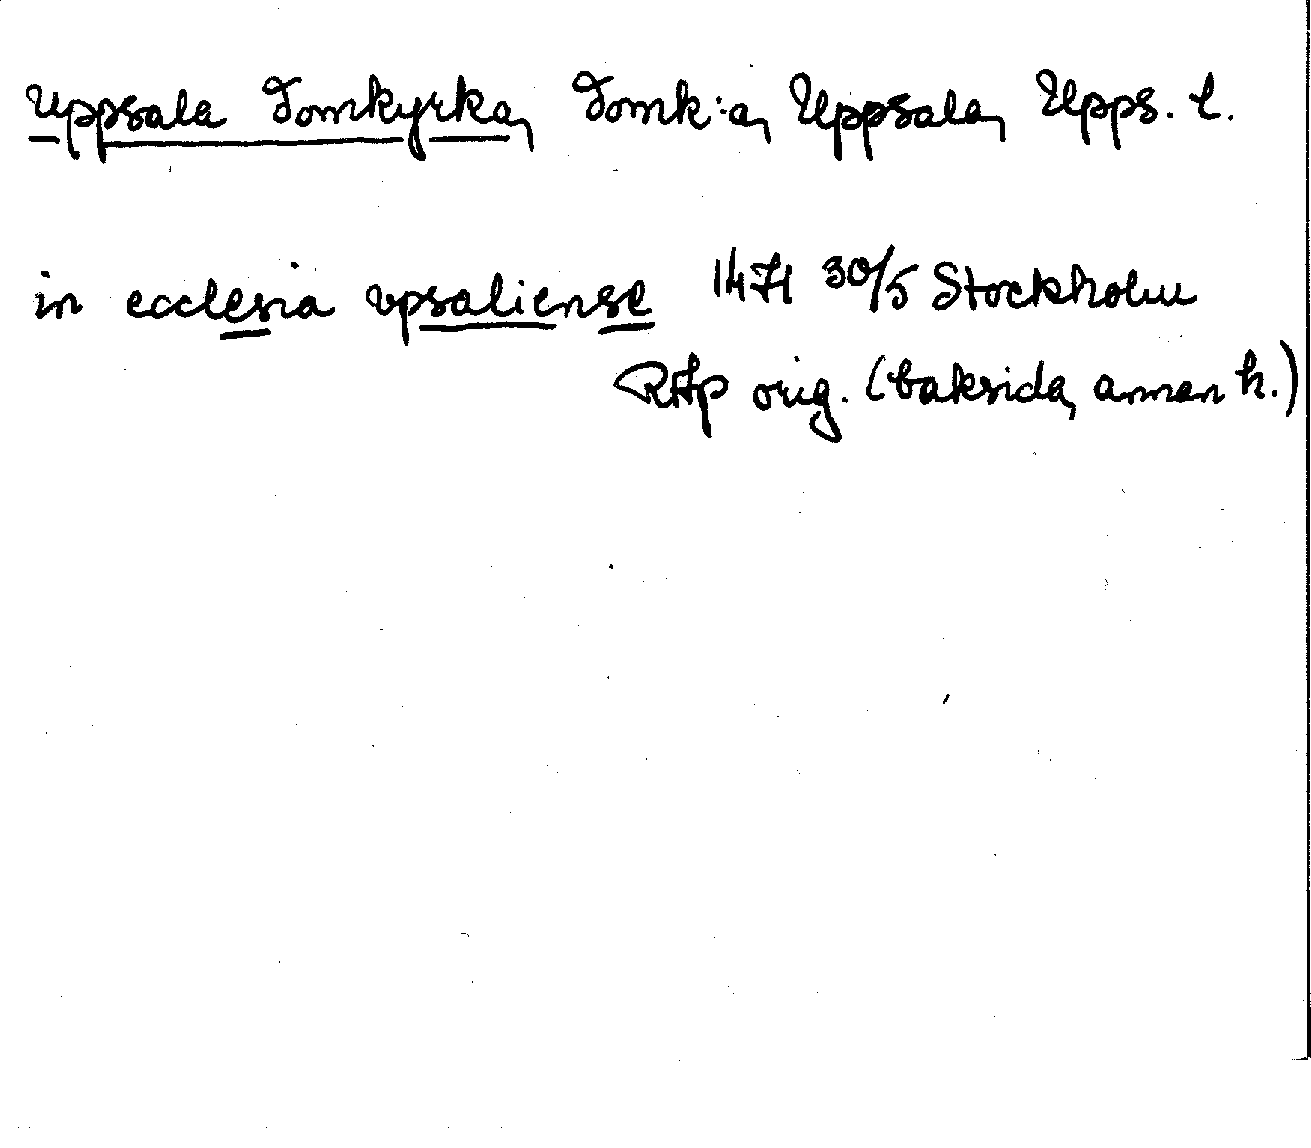 Uppsala Domkyrka, Domk:a, Uppsala, Upps. l.
in ecclesia vpsaliense 1471 30/5 Stockholm
RAp orig. (baksida, annan h.)